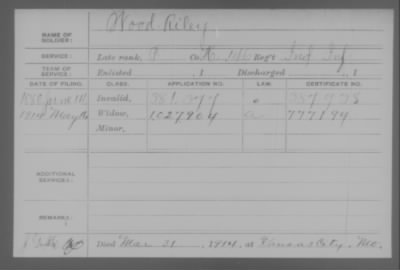 NAME OF SOLDIER: Wood Riley
SERVICE: Late rank, P Co. K, Reg't Ind Inf
TERM OF SERVICE: Enlisted , 1 Discharged , 1
DATE OF FILING. CLASS. APPLICATION NO. LAW. CERTIFICATE NO.
1880 June Invalid,
1914 May Widow, 1027904 777194
Minor,
ADDITIONAL SERVICES:
REMARKS:
Died Mar 31, 1914, at Kansas City, Mo.